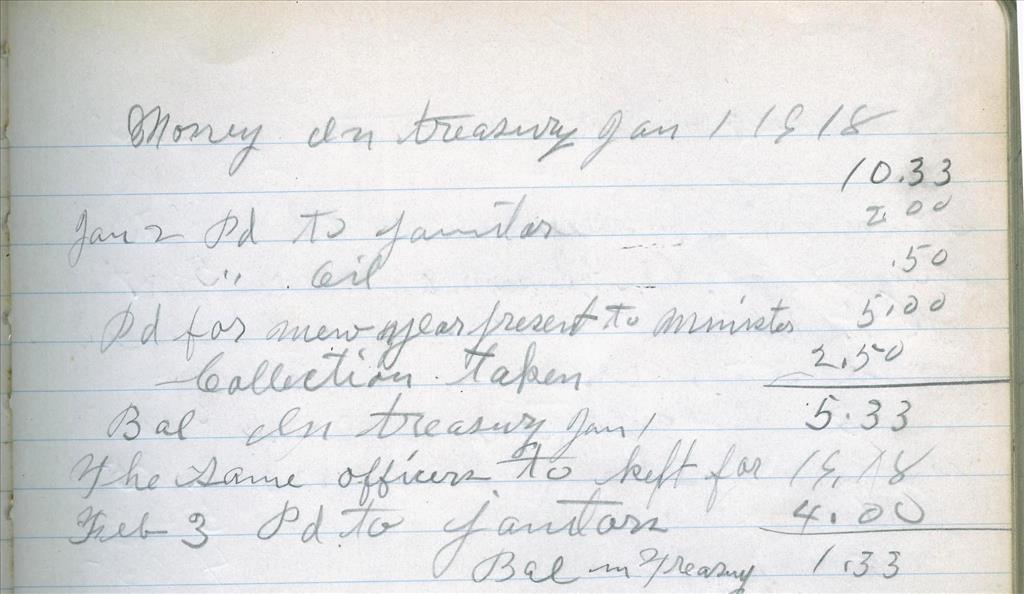 Money In treasury Jan 1 1918
10.33
Jan 2 Pd to janitor 2.00
" Oil .50
Pd for new year present to minister 5.00
Collection taken 2.50
Bal In treasury Jan 1 5.33
The same officers to kept for 19,18
Feb 3 Pd to janitors 4.00
Bal in Treasury 1.33